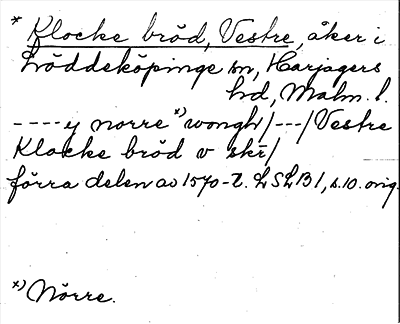 * Klocke bröd, Vestre, åker i
Löddeköpinge sn, Harjagers
hd, Malm. l.
----y norre *) wongh/---/Vestre
Klocke bröd v skr̄/
förra delen av 1570-t. LSLB1, s.10. orig.
*) Nörre.